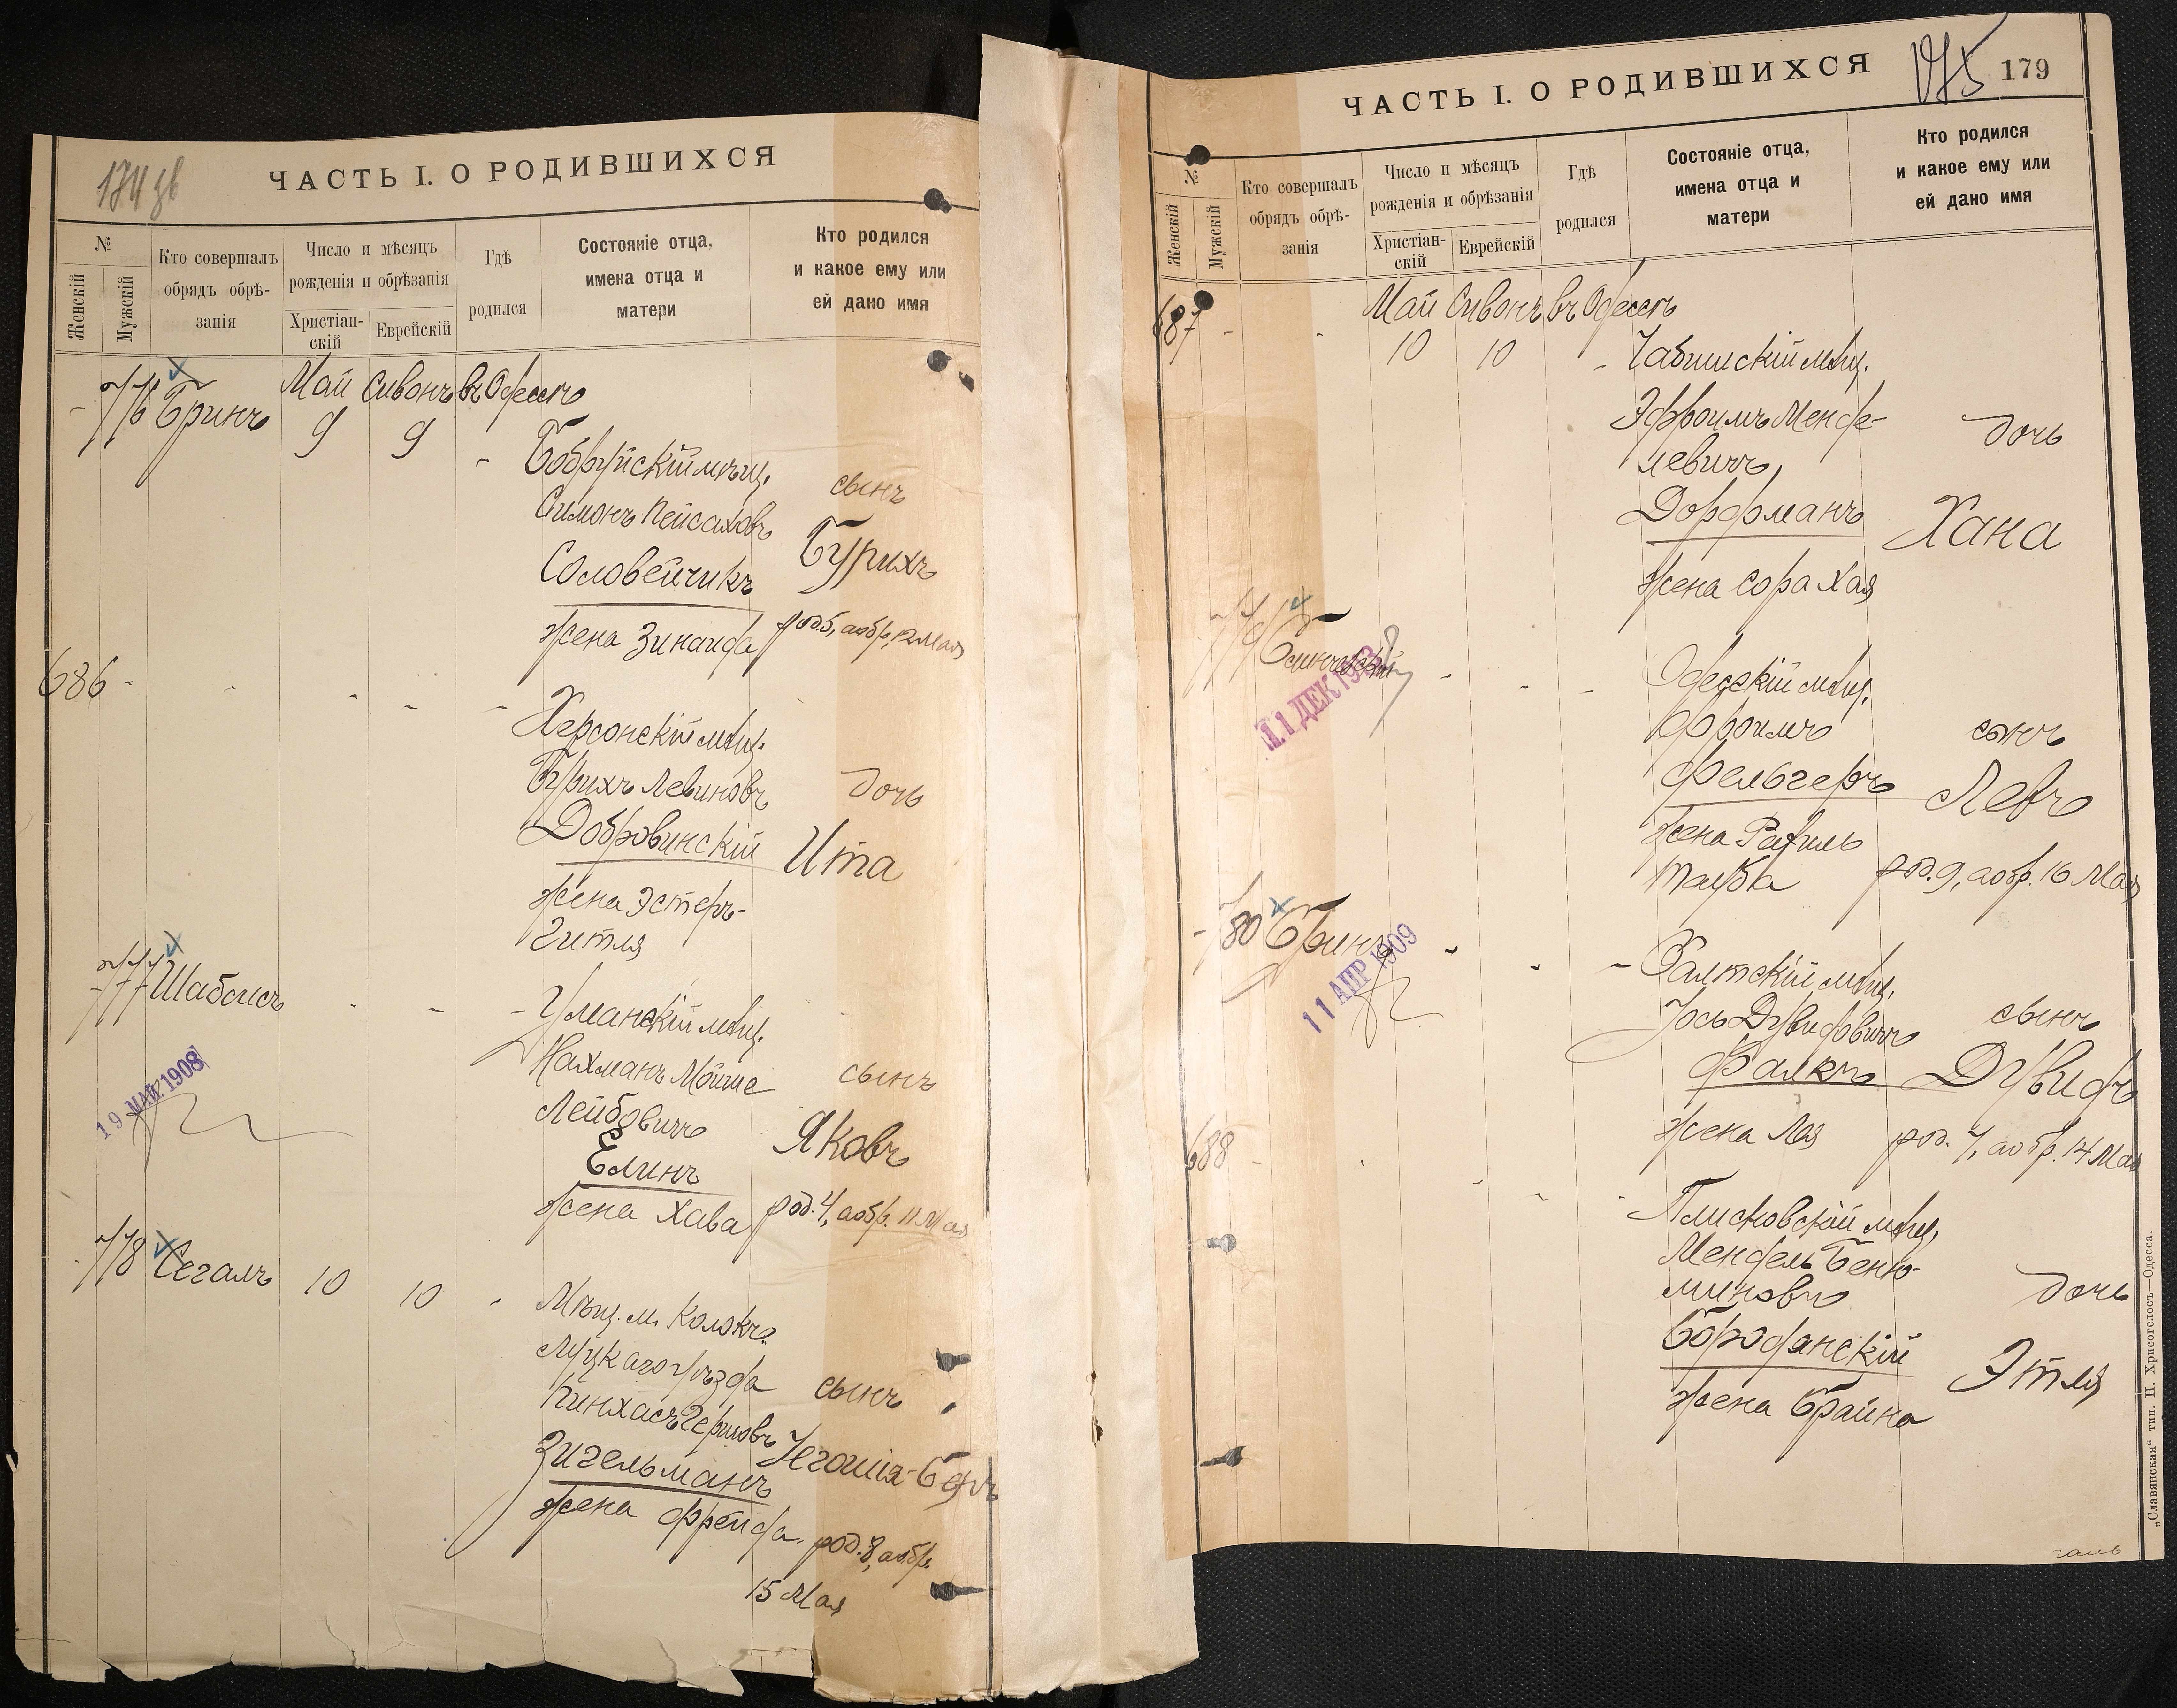 174 зв
ЧАСТЬ I. О РОДИВШИХСЯ
№
Женскій
Мужскій
Кто совершалъ обрядъ обрѣ-
занія
Число и мѣсяцъ
рожденія и обрѣзанія
Христіан-
скій
Еврейскій
Гдѣ
родился
Состояніе отца,
имена отца и
матери
Кто родился
и какое ему или
ей дано имя
Май Сивонъ въ Одессѣ
- 776 Бринъ 9 9 -
Бобруйскій мѣщ.
Симонъ Пейсаховъ
Соловейчикъ
жена Зинаида
сынъ
Бурихъ
род. 5, а обр. 12 Мая
686 - - - - -
Херсонскій мѣщ.
Бурихъ Левиновъ
Добровинскій
жена Эстеръ-
Гитля
дочь
Ита
- 777 Шабсисъ - - -
19 МАЙ 1908
Уманскій мѣщ.
Нахманъ Мойше
Лейбовичъ
Елинъ
жена Хава
сынъ
Яковъ
род. 4, а обр. 11 Мая
778 Сегалъ 10 10 -
Мѣщ. м. Колокъ
Луцкаго уѣзда
Пинхасъ Гершовъ
Зигельманъ
жена Фрейда
сынъ
Іегошія-Беръ
род. 8, а обр.
15 Мая
175 179
ЧАСТЬ I. О РОДИВШИХСЯ
№
Женскій
Мужскій
Кто совершалъ
обрядъ обрѣ-
занія
Число и мѣсяцъ
рожденія и обрѣзанія
Христіан-
скій
Еврейскій
Гдѣ
родился
Состояніе отца,
имена отца и
матери
Кто родился
и какое ему или
ей дано имя
Май Сивонъ въ Одессѣ
687 - - 10 10 -
мѣщ.
Эфроимъ Менде-
левичъ
Дорфманъ
жена Сора Хая
дочь
Хана
779
- - -
11 ДЕК
Одесскій мѣщ.
Фроимъ
Фельгеръ
жена Рахиль
Тауба
сынъ
Левъ
род. 9, а обр. 16 Мая
- 780 Бринъ - - -
11 АПР 1909
Балтскій мѣщ.
Іось Дувидовичъ
Фалкъ
жена Лея
сынъ
Дувидъ
род. 7, а обр. 14 Мая
688 - - - - -
Плисковскій мѣщ.
Мендель Беню-
миновъ
Бородянскій
жена Брайна
дочь
Этля
„Славянская“ тип. Н. Хрисогелосъ—Одесса.